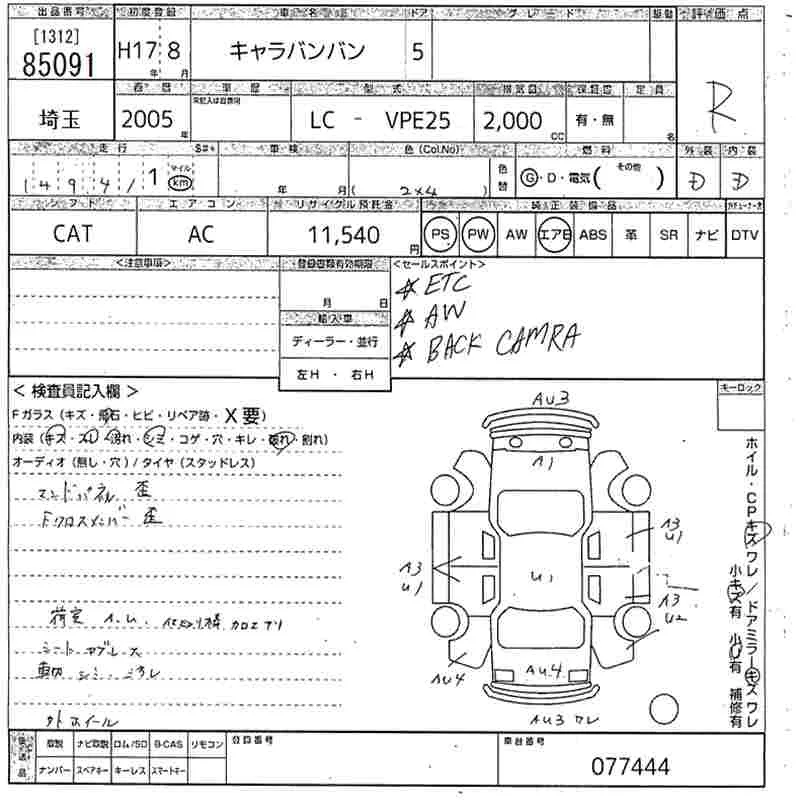 出品番号 初度登録 車名 ドア グレード 駆動 評価点
[1312]
85091 H17 8 キャラバンバン 5 R
年 月
車歴 車歴 型式 排気量 保証書 定員
未記入は自家用
埼玉 2005年 LC - VPE25 2,000CC 有・無 名
走行 S#* 車検 色(Col.No) 燃料 外装 内装
149,4/1 マイル km 年 月 (2x4) 色替 G・D・電気(その他) D D
シフト エアコン リサイクル預託金 純正装備品
CAT AC 11,540円 PS PW AW エアB ABS 革 SR ナビ DTV
<注意事項> 登録書類有効期限 <セールスポイント>
月 日
☆ETC
☆AW
☆BACK CAMRA
輸入車
ディーラー・並行
左H・右H
<検査員記入欄> キーロック
Fガラス(キズ・飛石・ヒビ・リペア跡・X要)
内装(キズ・スレ・汚れ・シミ・コゲ・穴・キレ・破れ・割れ)
オーディオ(無し・穴)/タイヤ(スタッドレス)
歪
Fクロスメンバー 歪
荷室
加工アリ
シート
シミ
外 ホイール
AU3
A1
A3
U1
A3
U1
U1
A3
U2
AU4
AU4
AU3 ワレ
ホイル・CPキズワレ/ドアミラーキズワレ
小キズ有 小U有 補修有
後送品 取説 ナビ取説 ロム/SD B-CAS リモコン 登録番号 車台番号
ナンバー スペアキー キーレス スマートキー
077444